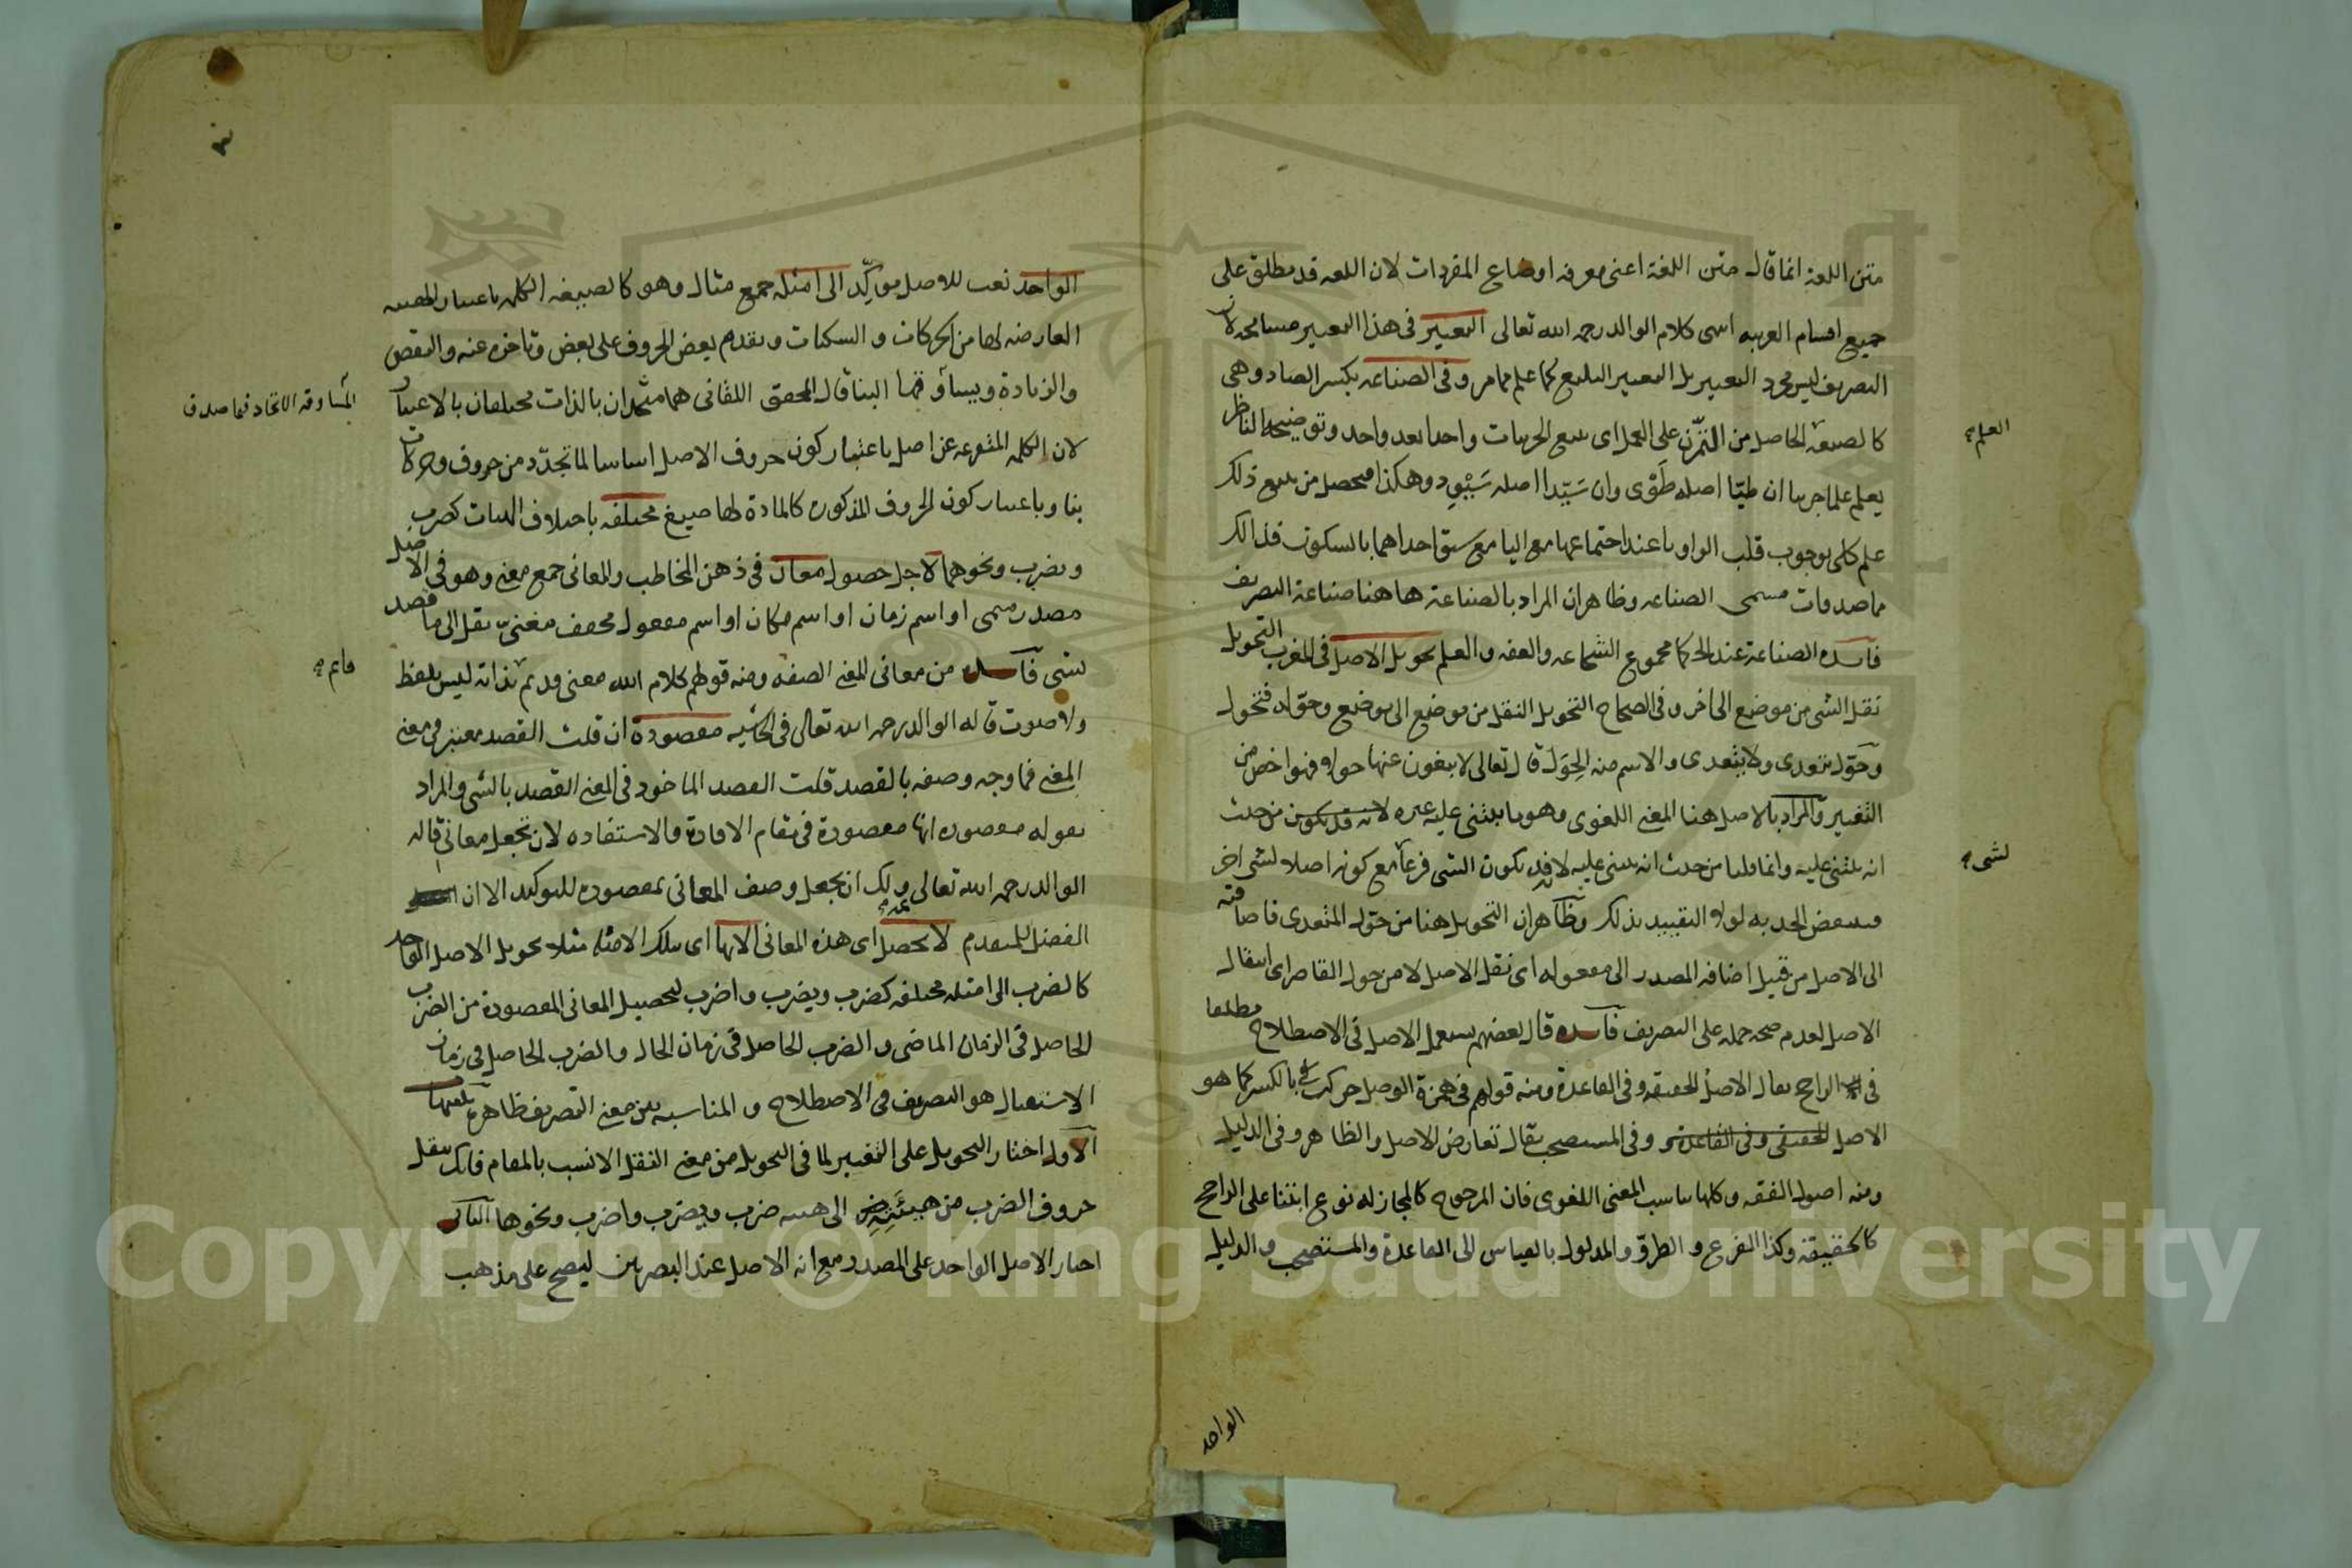 متن اللغة انما قال متن اللغة اعنى معرفه اوضاع المفردات لان اللغه قد يطلق على
جميع اقسام العربيه انتهى كلام الوالد رحمه الله تعالى التغيير فى هذا التعبير مسامحه لان
التصريف ليس مجرد التغيير بل التغيير البليغ كما علم مما مر وفى الصناعه بكسر الصاد وهى
كالصيغه الحاصل من التمرّن على العمل اى تتبع الجزييات واحدا بعد واحد وتوضيحه الناظر
العلم
يعلم علما جزييا ان طيّا اصله طَوْى وان سَيّدا اصله سَيْوِد وهكذا فيحصل من تتبع ذلك
علم كلى بوجوب قلب الواو يا عند اجتماعها مع اليا مع سبق احداهما بالسكون فذالك
مما صدقات مسمى الصناعه وظاهر ان المراد بالصناعة هاهنا صناعة التصريف
فايده الصناعة عند الحكما مجموع الشجاعه والعفه والعلم تحويل الاصل فى المغرب التحويل
نقل الشى من موضع الى اخر وفى الصحاح التحويل النقل من موضع الى موضع وحوّله فتحول
وحوّل يتعدى ولا يتعدى والاسم منه الحِوَل قال تعالى لا يبغون عنها حولا فهو اخص من
التغيير والمراد بالاصل هنا المعنى اللغوى وهو ما يبتنى عليه غيره لانه قد يكون من حيث
انه يبتنى عليه وانما قلنا من حيث انه يبتنى عليه لانه قد يكون الشى فرعا مع كونه اصلا لشى اخر
لشى
فينتقض الحد به لولا التقييد بذلك وظاهر ان التحويل هنا من حوّل المتعدى فاضافته
الى الاصل من قبيل اضافه المصدر الى مفعوله اى نقل الاصل لا من حول القاصر اى انتقال
الاصل لعدم صحه حمله على التصريف فايده قال بعضهم يستعمل الاصل فى الاصطلاح مطلقا
فى الراجح يقال الاصل الحقيقه وفى القاعدة ومنه قولهم فى همزة الوصل حركت بالكسر كما هو
الاصل الحقيقى وفى القاعدة وفى المستصحب يقال تعارض الاصل والظاهر وفى الدليل
ومنه اصول الفقه وكلها يناسب المعنى اللغوى فان المرجوح كالمجاز له نوع ابتنا على الراجح
كالحقيقة وكذا الفرع و الطروّ والمدلول بالقياس الى القاعدة والمستصحب والدليل
الواحد
الواحد نعت للاصل موكِّد الى امثله جمع مثال وهو كالصيغه الكلمه باعتبار الهييه
العارضه لها من الحركات و السكنات وتقدم بعض الحروف على بعض وتاخره عنه والنقص
والزيادة ويساوقها البنا قال المحقق اللقانى هما متحدان بالذات مختلفان بالاعتبار
المساوقه الاتحاد فيما صدق
لان الكلمه المتفرعه عن اصل باعتبار كون حروف الاصل اساسا لما تجدّد من حروف وحركات
بنا وباعتبار كون الحروف المذكوره كالمادة لها صيغ مختلفه باختلاف الهيات كضرب
ويضرب ونحوهما لاجل حصول معان فى ذهن المخاطب والمعانى جمع معنى وهو فى الاصل
مصدر ميمى او اسم زمان او اسم مكان او اسم مفعول مخفف معنىّ نقل الى ما قصد
بشى فايده من معانى المعنى الصفه ومنه قولهم كلام الله معنى قديم بذاته ليس بلفظ
قايم
ولا صوت قاله الوالد رحمه الله تعالى فى الحاشيه مقصودة ان قلت القصد معتبر فى معنى
المعنى فما وجه وصفه بالقصد قلت القصد الماخوذ فى المعنى القصد بالشى والمراد
بقوله مقصوده انها مقصودة فى مقام الافادة والاستفاده لان تجعل معانى قاله
الوالد رحمه الله تعالى ولك ان يجعل وصف المعانى بمقصوده للتوكيد الا ان
الفضل للمتقدم لا يحصل اى هذه المعانى الا بها اى بتلك الامثله مثلا تحويل الاصل الواحد
كالضرب الى امثله مختلفه كضرب ويضرب واضرب لتحصيل المعانى المقصودة من الضرب
الحاصل فى الزمان الماضى و الضرب الحاصل فى زمان الحال والضرب الحاصل فى زمان
الاستقبال هو التصريف فى الاصطلاح و المناسبه بين معنى التصريف ظاهره
الاول اختار التحويل على التغيير لما فى التحويل من معنى النقل الانسب بالمقام فانك تنقل
حروف الضرب من هييته الى هييه ضرب ويضرب واضرب ونحوها الثانى
اختار الاصل الواحد على المصدر مع انه الاصل عند البصريين ليصح على مذهب